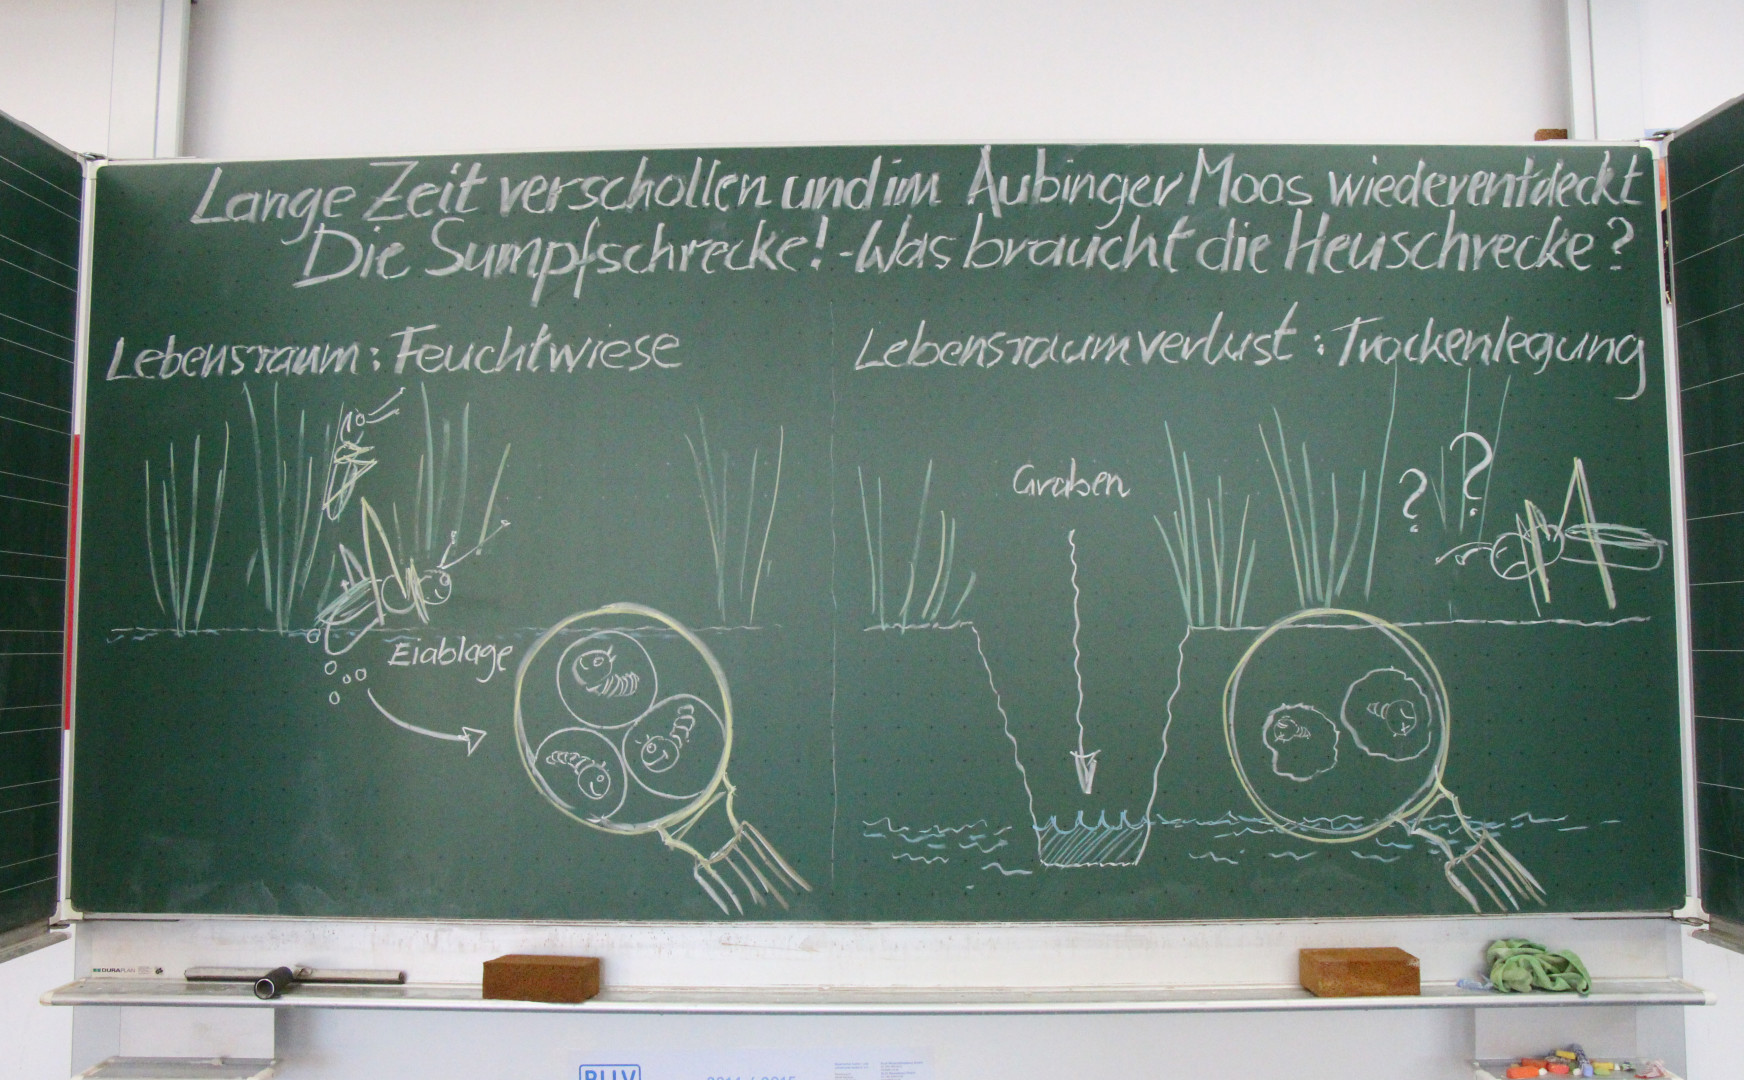 Lange Zeit verschollen und im Aubinger Moos wiederentdeckt
Die Sumpfschrecke! - Was braucht die Heuschrecke?
Lebensraum: Feuchtwiese
Lebensraumverlust: Trockenlegung
? ?
Graben
Eiablage
DURAPLAN
BLLV
2014 / 2015